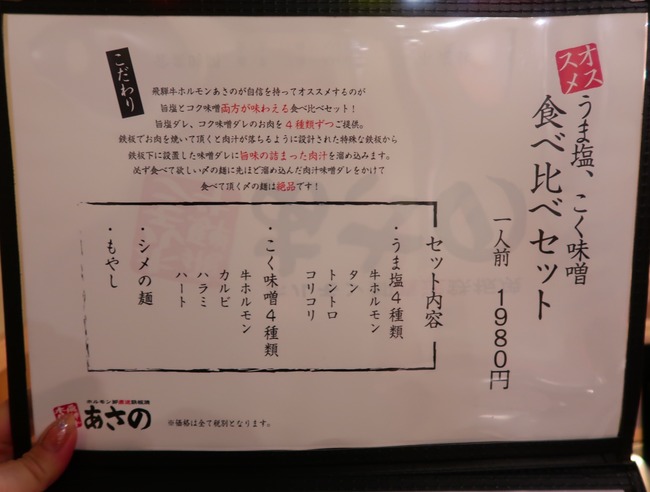 オススメ
うま塩、こく味噌
食べ比べセット
一人前 1980円
こだわり
飛騨牛ホルモンあさのが自信を持ってオススメするのが
旨塩とコク味噌両方が味わえる食べ比べセット！
旨塩ダレ、コク味噌ダレのお肉を４種類ずつご提供。
鉄板でお肉を焼いて頂くと肉汁が落ちるように設計された特殊な鉄板から
鉄板下に設置した味噌ダレに旨味の詰まった肉汁を溜め込みます。
必ず食べて欲しい〆の麺に先ほど溜め込んだ肉汁味噌ダレをかけて
食べて頂く〆の麺は絶品です！
セット内容
・うま塩４種類
牛ホルモン
タン
トトロ
コリコリ
・こく味噌４種類
牛ホルモン
カルビ
ハラミ
ハート
・シメの麺
・もやし
あさの
※価格は全て税別となります。